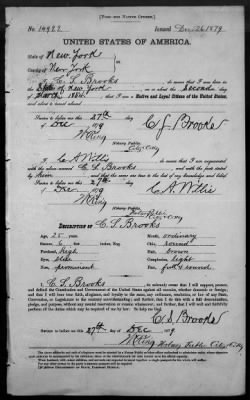 [FOR ONE NATIVE CITIZEN.]
No. 14922 Issued Dec. 26 1879
UNITED STATES OF AMERICA.
State of New York
County of New York
I, C. S. Brooks, do swear that I was born in
State of New York, on or about the Second day of
March, 1854; that I am a Native and Loyal Citizen of the United States,
and about to travel abroad.
Sworn to before me, this 27th day
of Dec 1879
C. S. Brooks
W King
Notary Public.
I, C A Willis, do swear that I am acquainted
with the above-named C. S. Brooks, and with the facts stated
Sworn to before me, this 27th day
of Dec 1879
C. A. Willis
W King
DESCRIPTION OF C. S. Brooks
Age, 25 years. Mouth, ordinary
Stature, 6 feet inches, Eng. Chin, round
Forehead, high Hair, brown
Eyes, blue Complexion, light
Nose, prominent Face, full & round
I, C. S. Brooks, do solemnly swear that I will support, protect,
and defend the Constitution and Government of the United States against all enemies, whether domestic or foreign;
and that I will bear true faith, allegiance, and loyalty to the same, any ordinance, resolution, or law of any State,
Convention, or Legislature to the contrary notwithstanding; and further, that I do this with a full determination,
pledge, and purpose, without any mental reservation or evasion whatsoever; and further, that I will well and faithfully
perform all the duties which may be required of me by law: So help me God.
C. S. Brooks
Sworn to before me, this 27th day of Dec 1879
W King Notary Public